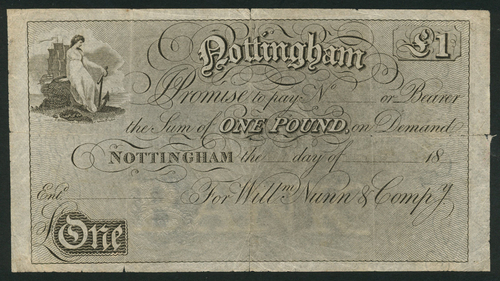 Nottingham £1
I Promise to pay No or Bearer
the Sum of ONE POUND, on Demand
NOTTINGHAM the day of 18
Entd For Willm Nunn & Compy
£One